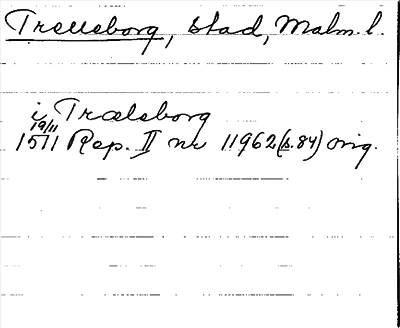 Trelleborg, stad, Malm. l.
i Trælsborg
19/11
1511 Rep. II nr 11962 (s. 84) orig.